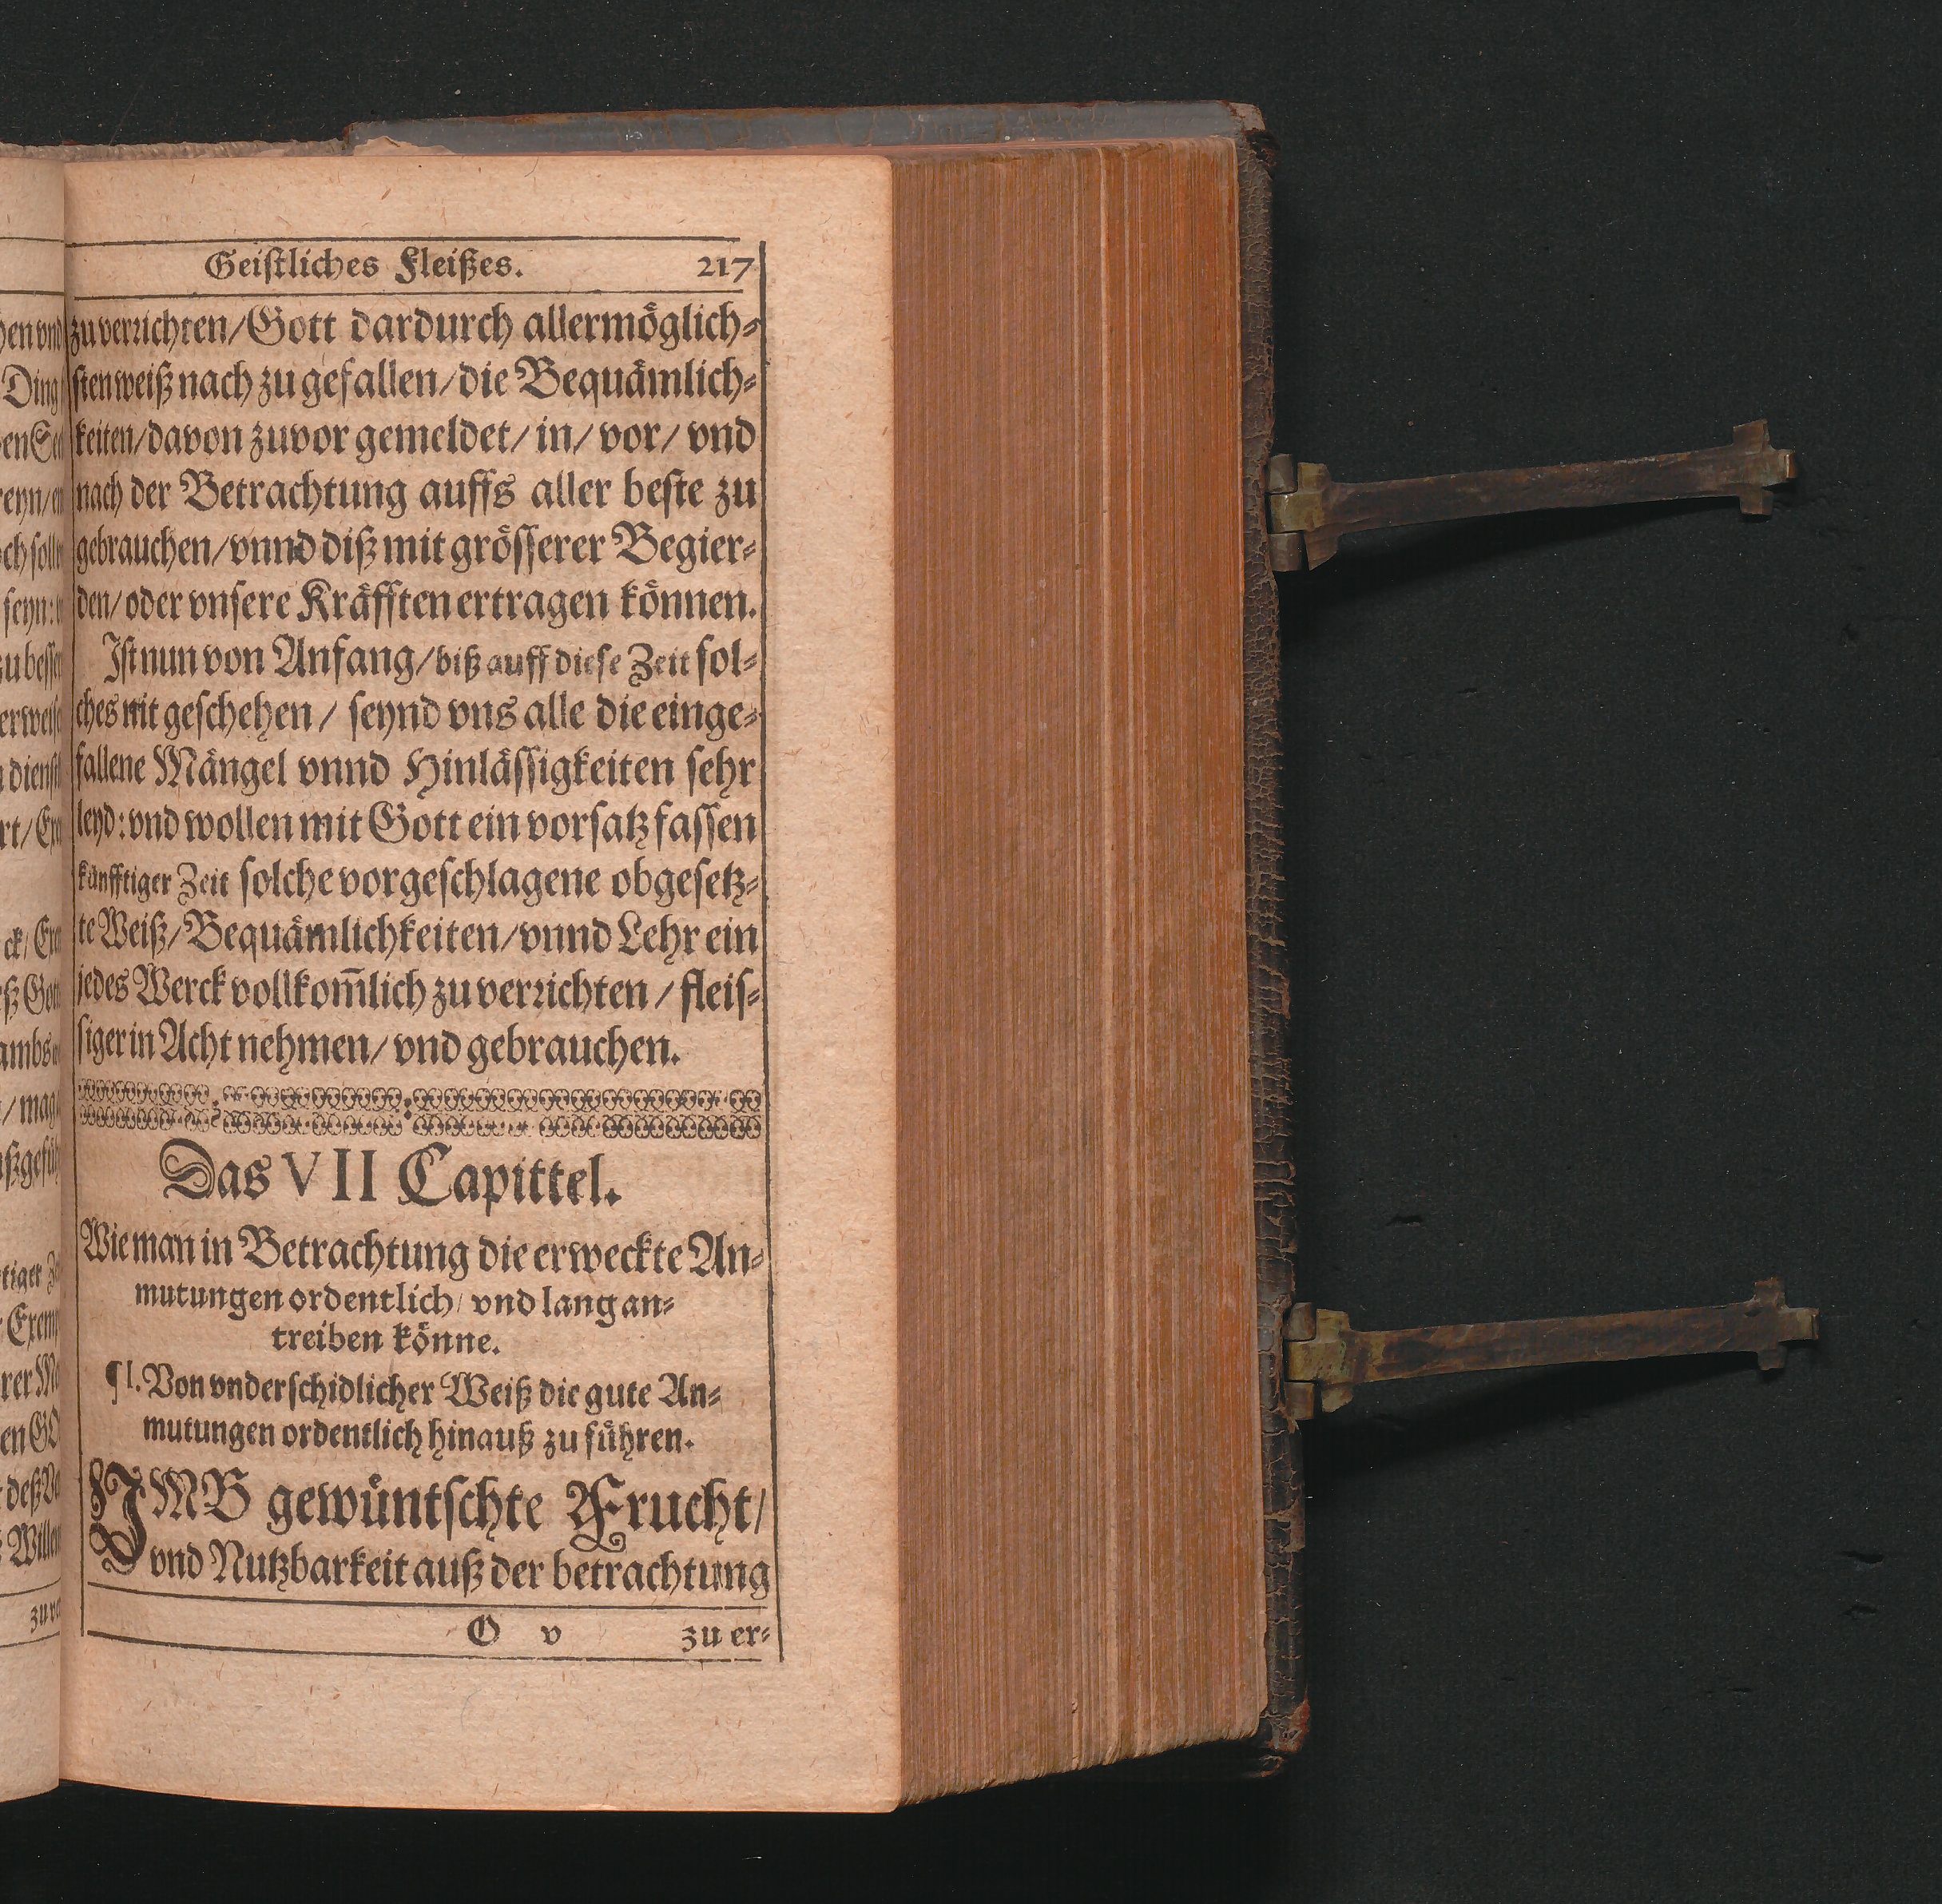 Geiſtliches Fleißes. 217
zu verꝛichten/Gott dardurch allermöglich⸗
ſten weiß nach zu gefallen/die Bequämlich⸗
keiten/davon zuvor gemeldet/ in/ vor/ vnd
nach der Betrachtung auffs aller beſte zu
gebrauchen/vnnd diß mit gröſſerer Begier⸗
den/ oder vnſere Kräfften ertragen können.
Iſt nun von Anfang/biß auff dieſe Zeit ſol⸗
ches nit geſchehen/ ſeynd vns alle die einge⸗
fallene Mängel vnnd Hinläſſigkeiten ſehr
leyd: vnd wollen mit Gott ein vorſatz faſſen
künfftiger Zeit ſolche vorgeſchlagene obgeſetz⸗
te Weiß/Bequämlichkeiten/vnnd Lehr ein
jedes Werck vollkom̃lich zu verꝛichten/ fleiſ⸗
ſiger in Acht nehmen/ vnd gebrauchen.
Das VII Capittel.
Wie man in Betrachtung die erweckte An⸗
mutungen ordentlich/ vnd lang an⸗
treiben könne.
¶I. Von vnderſchidlicher Weiß die gute An⸗
mutungen ordentlich hinauß zu führen.
VMB gewüntſchte Frucht/
vnd Nutzbarkeit auß der betrachtung
O v zu er⸗